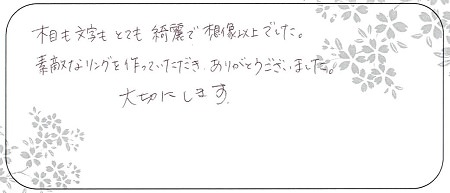 木目も文字もとても綺麗で想像以上でした。
素敵なリングを作っていただき、ありがとうございました。
大切にします。